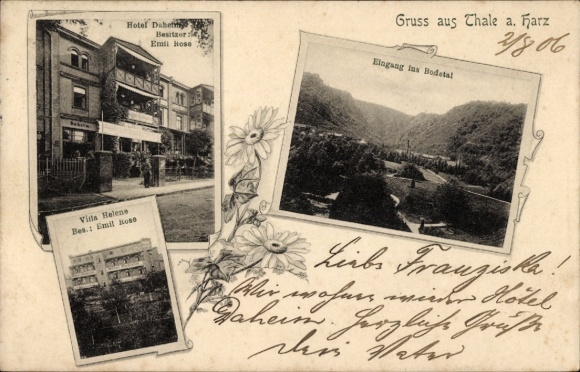 Gruss aus Thale a. Harz
2/8 06
Hotel Daheim
Besitzer:
Emil Rose
Daheim
Eingang ins Bodetal
Villa Helene
Bes.: Emil Rose
Liebe Franziska!
Wir wohnen wieder Hôtel
Daheim. Herzliche Grüße
Dein Vater